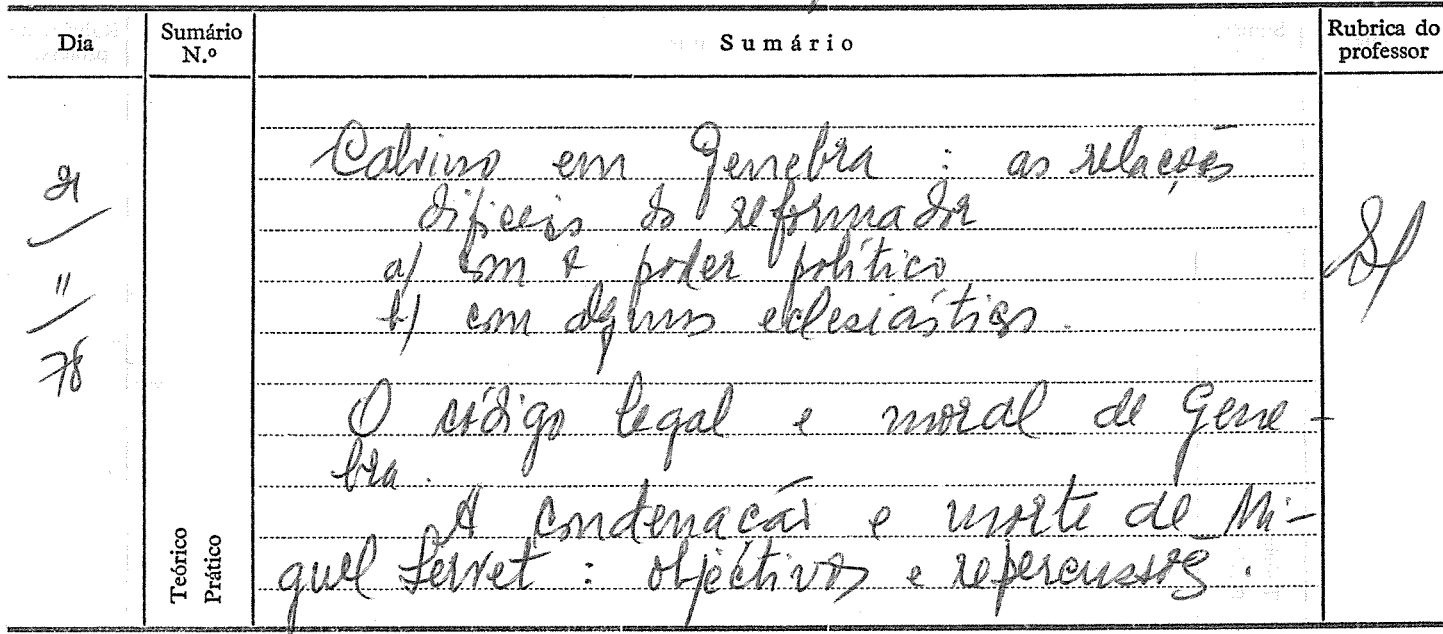 Dia
Sumário
N.º
Sumário
Rubrica do
professor
21
11
78
Calvino em Genebra : as relações
difíceis do reformador
a) com o poder político
b) com alguns eclesiásticos.
O código legal e moral de Gene-
bra.
A condenação e morte de Mi-
guel Servet : objectivos e repercussões.
Teórico
Prático